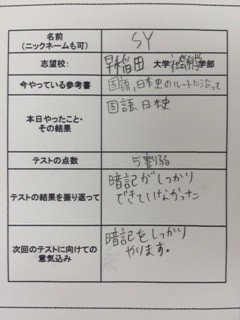 名前
(ニックネームも可)
SY
志望校:
早稲田 大学 社会科学 学部
今やっている参考書
国語、日本史のルートに沿って
本日やったこと・
その結果
国語、日本史
テストの点数
5割弱
テストの結果を振り返って
暗記がしっかり
できていなかった
次回のテストに向けての
意気込み
暗記をしっかり
やります。